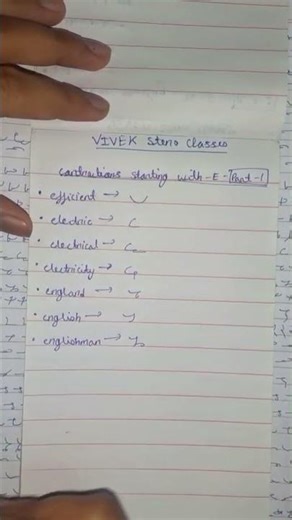 VIVEK Steno Classes
contractions starting with -E- Part-1
• efficient →
• electric →
• electrical →
• electricity →
• england →
• english →
• englishman →